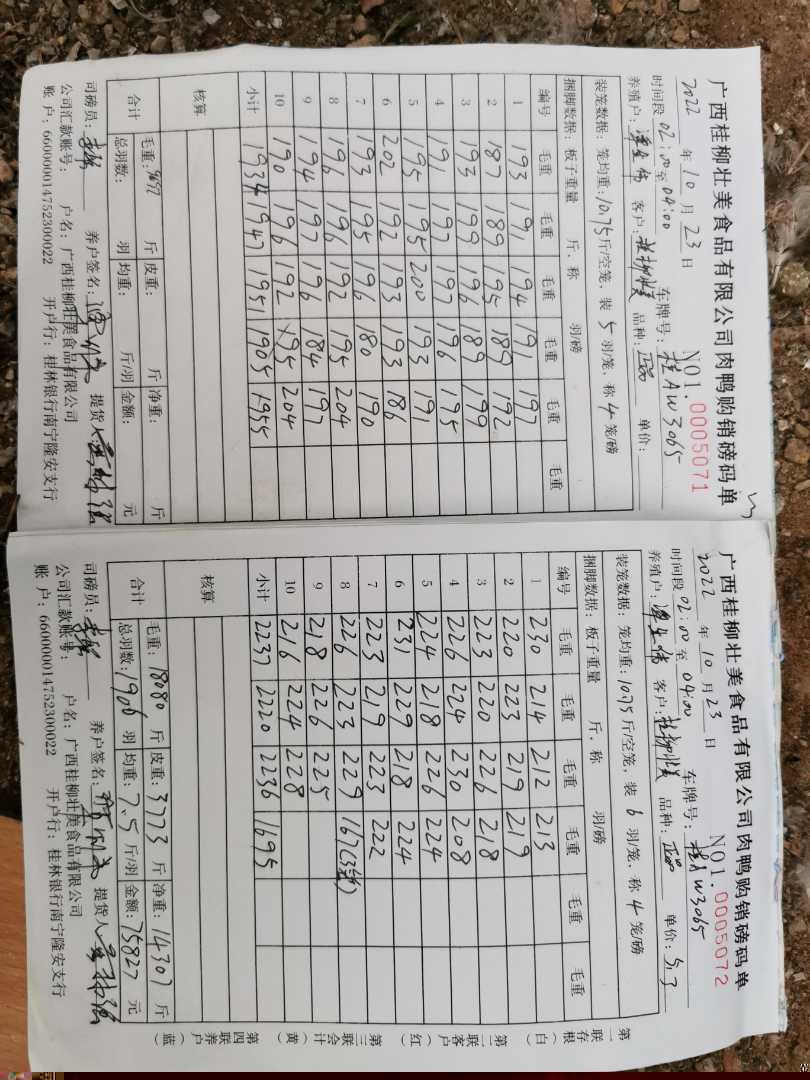 广西桂柳壮美食品有限公司肉鸭购销磅码单
2022 年 10 月 23 日 NO1.0005071
时间段 02:00 至 04:00 车牌号: 桂AW3065
养殖户: 客户: 桂柳壮美 品种: 正品 单价:
装笼数据: 笼均重: 10.75 斤/空笼, 装 5 羽/笼, 称 4 笼/磅
捆脚数据: 板子重量 斤, 称 羽/磅
编号 毛重 毛重 毛重 毛重 毛重 毛重
1 193 191 194 191 197
2 187 189 195 189 192
3 193 199 196 189 199
4 191 197 197 196 195
5 195 195 200 193 191
6 202 192 193 193 186
7 193 195 196 180 190
8 196 196 192 195 204
9 194 197 196 184 197
10 190 196 192 195 204
小计 1934 1947 1951 1905 1955
核算
合计 毛重: 9692 斤 皮重: 斤 净重: 斤
总羽数: 羽 均重: 斤/羽 金额: 元
司磅员: 养户签名: 提货人
公司汇款账号: 户名: 广西桂柳壮美食品有限公司
账户: 660000014752300022 开户行: 桂林银行南宁隆安支行
广西桂柳壮美食品有限公司肉鸭购销磅码单
2022 年 10 月 23 日 NO1.0005072
时间段 02:00 至 04:00 车牌号: 桂AW3065
养殖户: 客户: 桂柳壮美 品种: 正品 单价: 5.3
装笼数据: 笼均重: 10.75 斤/空笼, 装 6 羽/笼, 称 4 笼/磅
捆脚数据: 板子重量 斤, 称 羽/磅
编号 毛重 毛重 毛重 毛重 毛重 毛重
1 230 214 212 213
2 220 223 219 219
3 223 220 226 218
4 226 224 230 208
5 224 218 226 224
6 231 229 218 224
7 223 219 223 222
8 226 223 229 167(3笼)
9 218 226 225
10 216 224 228
小计 2237 2220 2236 1695
核算
合计 毛重: 18080 斤 皮重: 3773 斤 净重: 14307 斤
总羽数: 1906 羽 均重: 7.5 斤/羽 金额: 75827 元
司磅员: 养户签名: 提货人
公司汇款账号: 户名: 广西桂柳壮美食品有限公司
账户: 660000014752300022 开户行: 桂林银行南宁隆安支行
第一联存根(白)
第二联客户(红)
第三联会计(黄)
第四联养户(蓝)